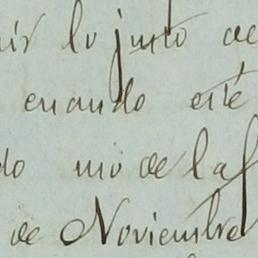 lo justo de
cuando este
do uso de la
de Noviembre